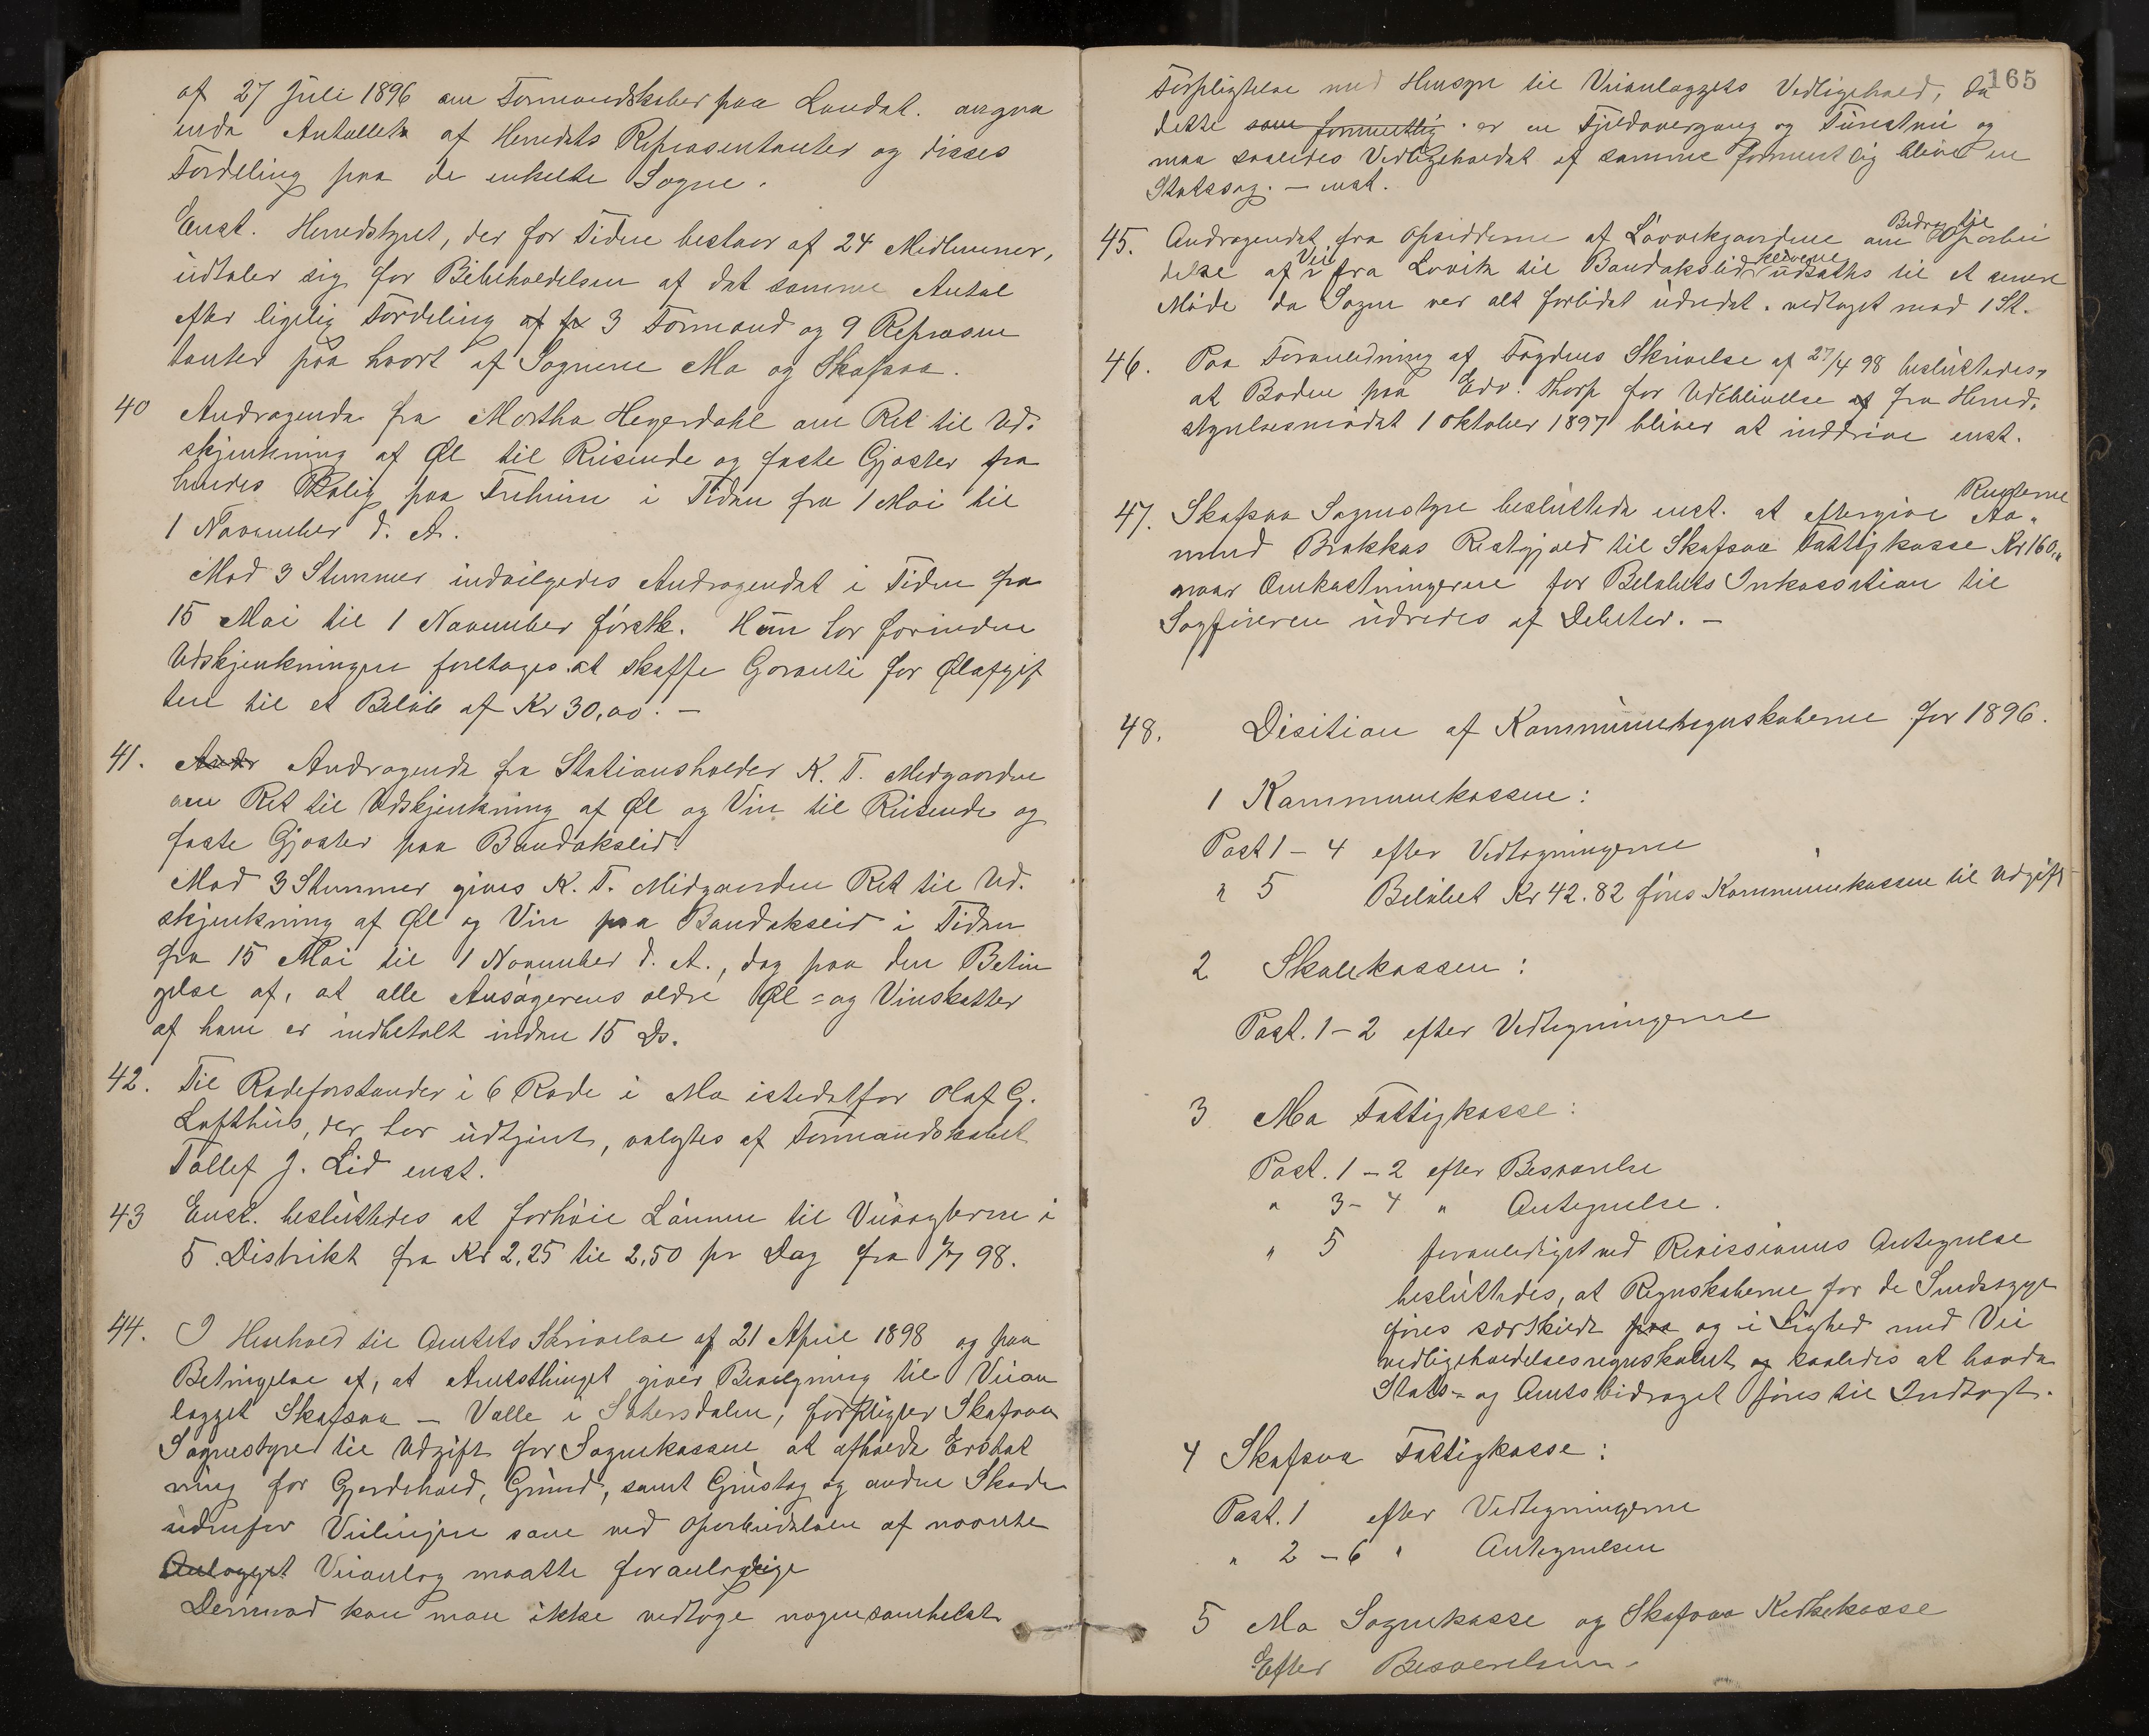 af 27 Juli 1896 om Formandskaber paa Landet. angaa
ende Antallet af Herredets Repræsentanter og disses
Fordeling paa de enkelte Sogne.
Enst. Herredstyret, der for Tiden bestaar af 24 Medlemmer,
udtaler sig for Bibeholdelsen af det samme Antal
efter ligelig Fordeling af fr 3 Formænd og 9 Repræsen
tanter paa hvert af Sognene Mo og Skafsaa.
40 Andragende fra Martha Hegerdahl om Ret til Ud-
skjenkning af Øl til Reisende og faste Gjæster fra
hendes Bolig paa Triheim i Tiden fra 1 Mai til
1 November d. A.
Mod 3 Stemmer indvilgedes Andragendet i Tiden fra
15 Mai til 1 November førstk. Hun har forinden
Udskjenkningen foretages at skaffe Garanti for Ølafgif
ten til et Beløb af Kr 30,00. —
41. Andr Andragende fra Stationsholder K. T. Midgaarden
om Ret til Udskjenkning af Øl og Vin til Reisende og
faste Gjæster paa Bandakseid.
Mod 3 Stemmer gives K. T. Midgaarden Ret til Ud-
skjenkning af Øl og Vin paa Bandakseid i Tiden
fra 15 Mai til 1 November d. A., dog paa den Betin
gelse af, at alle Ansøgerens ældre Øl= og Vinskatter
af ham er indbetalt inden 15 Ds.
42. Til Rodeforstander i 6 Rode i Mo istedetfor Olaf G.
Lofthus, der har udtjent, valgtes af Formandskabet
Tollef J. Lid enst.
43 Enst. besluttedes at forhøie Lønnen til Veivogterne i
5. Distrikt fra Kr 2,25 til 2,50 pr Dag fra 1/7 98.
44. I Henhold til Amtets Skrivelse af 21 April 1898 og paa
Betingelse af, at Amtsthinget giver Bevilgning til Veian
lægget Skafsaa — Valle i Sætersdalen, forpligter Skafsaa
Sognestyre til Udgift for Sognekassen at afholde Erstat
ning for Gjerdehold, Grund, samt Grustag og anden Skade
udenfor Veilinjen som ved Oparbeidelsen af nævnte
Anlægget Veianlæg maatte foranledige
Derimod kan man ikke vedtage nogensomhelst
165
Forpligtelse med Hensyn til Veianlæggets Vedligehold, da
dette som formentlig er en Fjeldovergang og Turistvei og
maa saaledes Vedligeholdet af samme formentlig blive en
Statssag. — enst.
45. Andragendet fra Opsidderne af Lovvikgaardene om Bidrag til Oparbei
delse af Vei fra Lovvik til Bandakslid kleivene udsattes til et senere
Møde da Sogne ver alt forbidet udredet. vedtaget mod 1 St.
46. Paa Foranledning af Fogdens Skrivelse af 27/4 98 besluttedes,
at Boden paa Edv. Thorp for Udeblivelse af fra Herred-
styrelsesmødet 1 Oktober 1897 bliver at inddrive enst.
47. Skafsaa Sognestyre besluttede enst. at eftergive Renterne Aa-
mund Brokkas Restgjæld til Skafsaa Fattigkasse Kr 160,
naar Omkostningerne for Beløbets Inkassation til
Sagføreren udredes af Debitor. —
48. Disition af Kommuneregnskaberne for 1896.
1 Kommunekassen:
Post 1 – 4 efter Vedtegningerne
" 5 Beløbet Kr 42.82 føres Kommunekassen til Udgift
2 Skolekassen:
Post. 1–2 efter Vedtegningerne
3 Mo Fattigkasse:
Post. 1–2 efter Besvarelse
" 3–4 " Antegnelse.
" 5 foranlediget ved Revisionens Antegnelse
besluttedes, at Regnskaberne for de Sindssyge
føres særskildt paa og i Lighed med Vei
vedligeholdelsesregnskabet og saaledes at baade
Stats= og Amtsbidraget føres til Indtægt.
4 Skafsaa Fattigkasse:
Post. 1 efter Vedtegningerne
" 2 – 6 " Antegnelsen
5 Mo Sognekasse og Skafsaa Kirkekasse
Efter Besvarelsen.